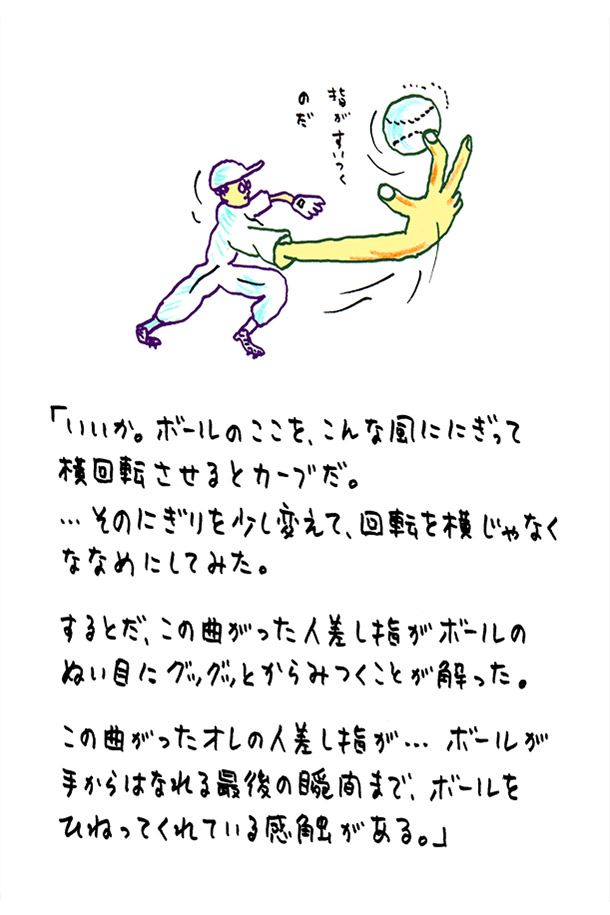 指がすいつく
のだ
「いいか。ボールのここを、こんな風ににぎって
横回転させるとカーブだ。
…そのにぎりを少し変えて、回転を横じゃなく
ななめにしてみた。
するとだ、この曲がった人差し指がボールの
ぬい目にグッグッとからみつくことが解った。
この曲がったオレの人差し指が… ボールが
手からはなれる最後の瞬間まで、ボールを
ひねってくれている感触がある。」